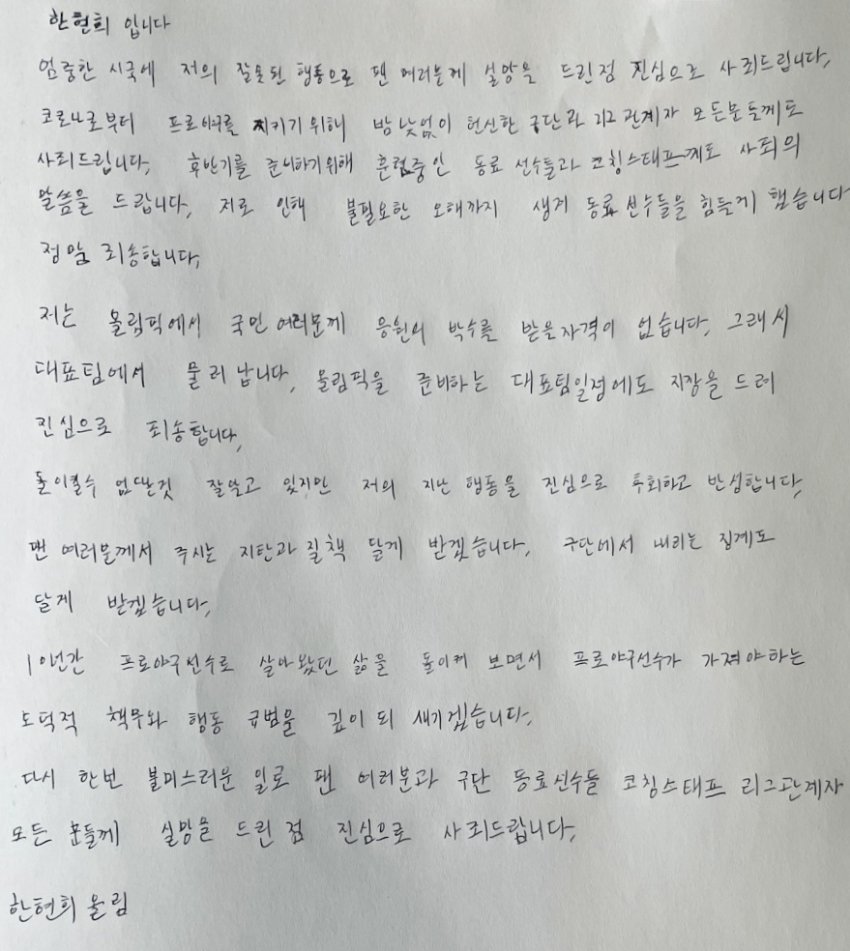 한현희 입니다
엄중한 시국에 저의 잘못된 행동으로 팬 여러분께 실망을 드린점 진심으로 사죄드립니다,
코로나로부터 프로야구를 지키기위해 밤낮없이 헌신한 구단과 리그 관계자 모든분들께도
사죄드립니다, 후반기를 준비하기위해 훈련중인 동료 선수들과 코칭스태프께도 사죄의
말씀을 드립니다, 저로 인해 불필요한 오해까지 생겨 동료선수들을 힘들게 했습니다
정말 죄송합니다,
저는 올림픽에서 국민여러분께 응원의 박수를 받을자격이 없습니다, 그래서
대표팀에서 물러납니다, 올림픽을 준비하는 대표팀일정에도 지장을 드려
진심으로 죄송합니다,
돌이킬수 없단것 잘알고 있지만 저의 지난 행동을 진심으로 후회하고 반성합니다,
팬 여러분께서 주시는 지탄과 질책 달게 받겠습니다, 구단에서 내리는 징계도
달게 받겠습니다,
10년간 프로야구선수로 살아왔던 삶을 돌이켜 보면서 프로야구선수가 가져야하는
도덕적 책무와 행동 규범을 깊이 되 새기겠습니다,
다시 한번 불미스러운 일로 팬 여러분과 구단 동료선수들 코칭스태프 리그관계자
모든 분들께 실망을 드린 점 진심으로 사죄드립니다,
한현희 올림